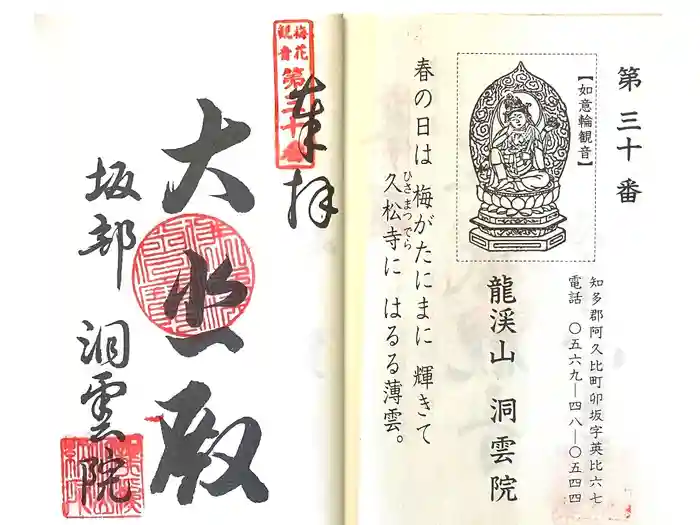 第三十番
【如意輪観音】
知多郡阿久比町卯坂字英比六七
電話 〇五六九―四八―〇五四四
龍渓山 洞雲院
春の日は 梅がたにまに 輝きて
ひさまつでら
久松寺に はるる薄雲。
梅花
観音
第三十番
奉拝
大悲殿
坂部 洞雲院